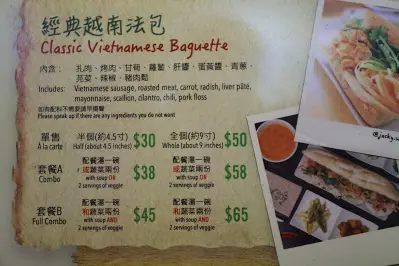 經典越南法包
Classic Vietnamese Baguette
內含： 扎肉、烤肉、甘筍、蘿蔔、肝醬、蛋黃醬、青蔥、
芫茱、辣椒、豬肉鬆
Includes: Vietnamese sausage, roasted meat, carrot, radish, liver pâté,
mayonnaise, scallion, cilantro, chili, pork floss
如有配料不需要請早預覺
Please speak up if there are any ingredients you do not want
單售 半個(約4.5寸) $30 全個(約9寸) $50
À la carte Half (about 4.5 inches) Whole (about 9 inches)
套餐A 配餐湯一碗 $38 配餐湯一碗 $58
Combo 或蔬菜兩份 或蔬菜兩份
with soup OR with soup OR
2 servings of veggie 2 servings of veggie
套餐B 配餐湯一碗 $45 配餐湯一碗 $65
Full Combo 和蔬菜兩份 和蔬菜兩份
with soup AND with soup AND
2 servings of veggie 2 servings of veggie